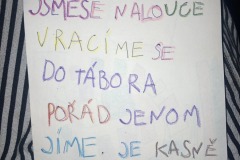 JSMESE NALOUCE
VRACÍME SE
DO TÁBORA
POŘÁD JENOM
JÍME. JE KASNĚ